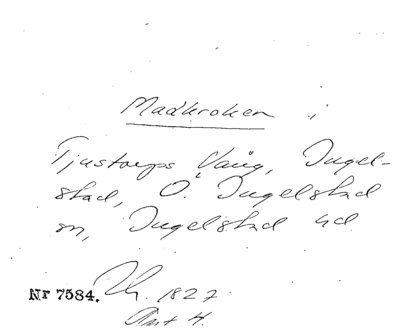 Madkroken i
Tjustorps Vång, Ingel-
stad, Ö. Ingelstad
sn, Ingelstad hd
Nr 7584. 1827
Akt 4.